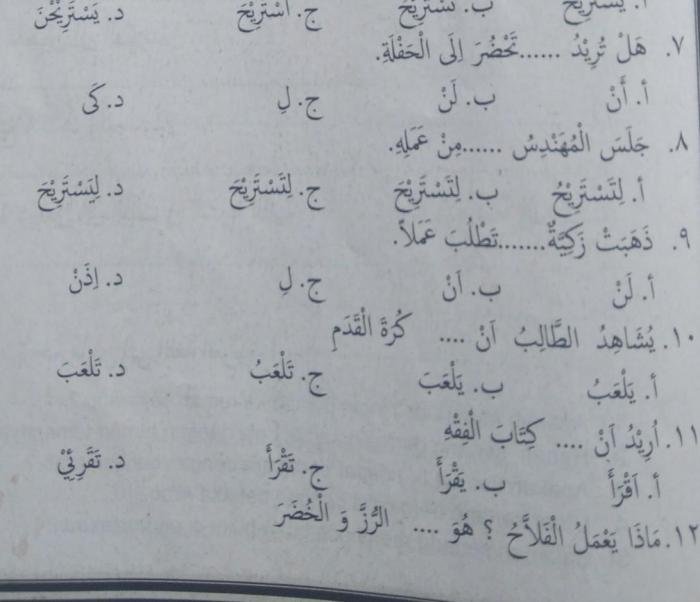 أ. يَسْتَرِيْحُ ب. تَسْتَرِيْحُ ج. اَسْتَرِيْحَ د. يَسْتَرِيْحْنَ
٧. هَلْ تُرِيْدُ ......تَحْضُرَ اِلَى الْحَفْلَةِ.
أ. أَنْ ب. لَنْ ج. لِ د. كَى
٨. جَلَسَ الْمُهَنْدِسُ ......مِنْ عَمَلِهِ.
أ. لِتَسْتَرِيْحُ ب. لِتَسْتَرِيْحَ ج. لِتَسْتَرِيْحَ د. لِيَسْتَرِيْحَ
٩. ذَهَبَتْ زَكِيَّةٌ.......تَطْلُبَ عَمَلاً.
أ. لَنْ ب. اَنْ ج. لِ د. اِذَنْ
١٠. يُشَاهِدُ الطَّالِبُ اَنْ .... كُرَةَ الْقَدَمِ
أ. يَلْعَبُ ب. يَلْعَبَ ج. تَلْعَبُ د. تَلْعَبَ
١١. اُرِيْدُ اَنْ .... كِتَابَ الْفِقْهِ
أ. اَقْرَأَ ب. يَقْرَأَ ج. تَقْرَأَ د. تَقْرَئِيْ
١٢. مَاذَا يَعْمَلُ الْفَلاَّحُ ؟ هُوَ .... الرُّزَّ وَ الْخُضَرَ